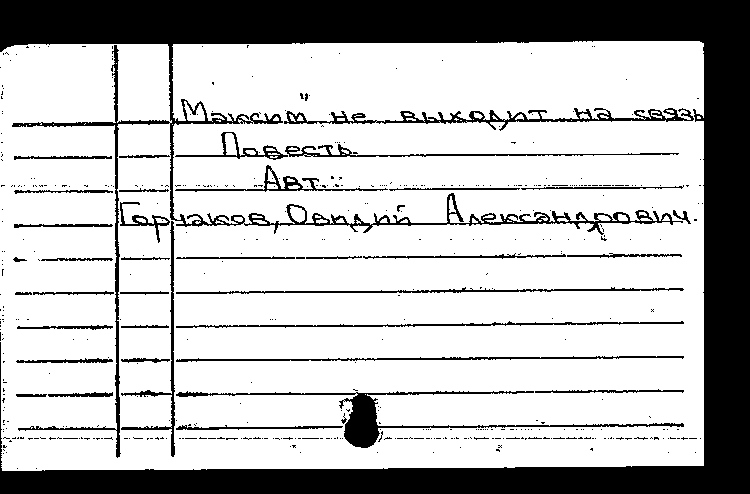 Максим" не выходит на связь
Повесть.
Авт.:
Горчаков, Овидий Александрович.